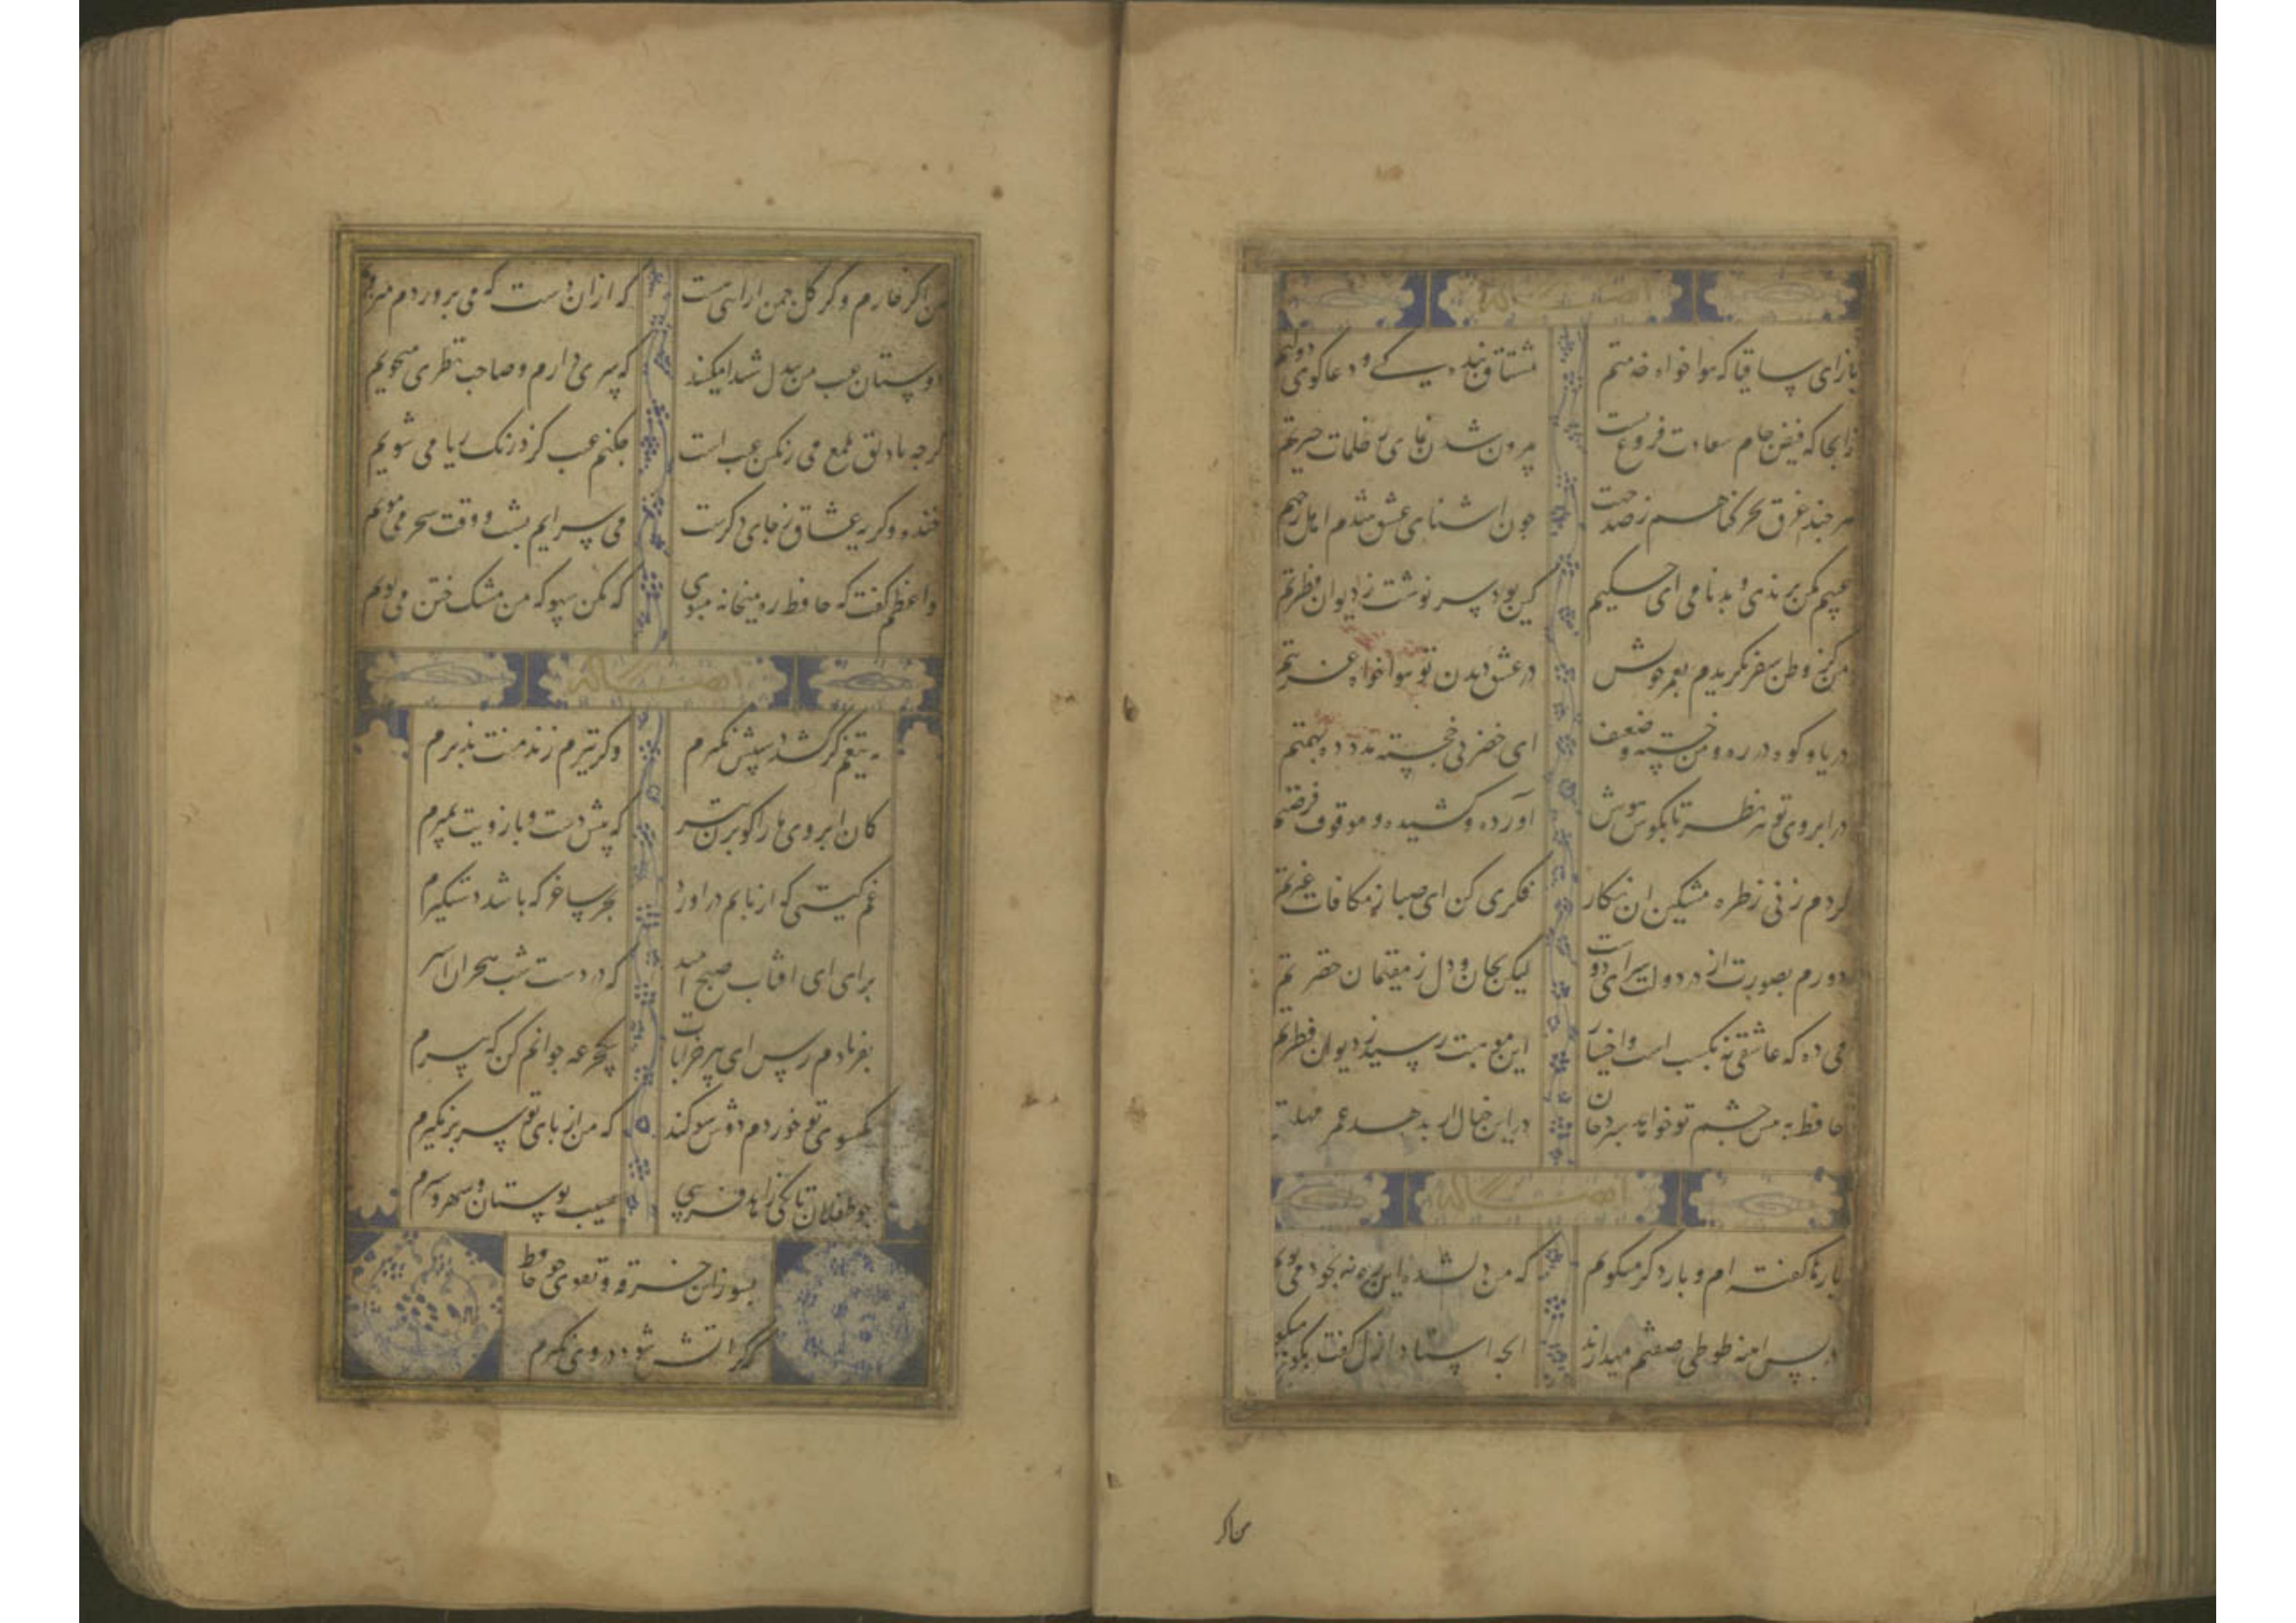 ایضا له
بازای ساقیا که هوا خواه خدمتم مشتاق بندگی و دعا گوی دولتم
زانجا که فیض جام سعادت فروغ تست بیرون شدن نمای ز ظلمات حیرتم
هر چند غرق بحر کناهم ز صد جهت چون اشنای عشق شدم اهل رحمتم
عیبم مکن برندی و بدنامی ای حکیم کین بود سر نوشت ز دیوان فطرتم
من کز وطن سفر نکزیدم بعمر خویش در عشق دیدن تو هوا خواه غربتم
دریا و کوه در ره و من خسته و ضعیف ای خضر پی خجسته مدد ده بهمتم
در ابروی تو تیر نظر تا بکوش هوش اورده و کشیده و موقوف فرصتم
کردم زنی ز طره مشکین ان نکار فکری کن ای صبا ز مکافات غیرتم
دورم بصورت از در دولت سرای دوست لیکن بجان و دل ز مقیمان حضرتم
می ده که عاشقی نه بکسب است و اختیار این موهبت رسید ز دیوان فطرتم
حافظ به پیش چشم تو خواهد سپرد جان در این خیالم ار بدهد عمر مهلتم
ایضا له
بارها کفته ام و بار دکر میکویم که من دلشده این ره نه بخود می پویم
در پس اینه طوطی صفتم میدارند انچه استاد ازل کفت بکو میکویم
من اکر
من اکر خارم و کر کل چمن ارایی هست که از ان دست که می پروردم میرویم
دوستان عیب من بیدل شیدا مکنید که پسری دارم و صاحب نظری میجویم
کرچه با دلق ملمع می رنکین عیب است مکنم عیب کزو رنک ریا می شویم
خنده و کریه عشاق ز جای دکرست می سرایم بشب و وقت سحر می مویم
واعظم کفت که حافظ ره میخانه مپوی که مکن سهو که من مشک ختن می بویم
ایضا له
به تیغم کر کشد دستش نکیرم وکر تیرم زند منت پذیرم
کمان ابروی ما را کو بزن تیر که پیش دست و بازویت بمیرم
غم کیتی کر از پایم در اورد بجز ساغر که باشد دستکیرم
برای ای افتاب صبح امید که در دست شب هجران اسیرم
بفریادم رس ای پیر خرابات بیکجرعه جوانم کن که پیرم
بکیسوی تو خوردم دوش سوکند که من از پای تو سر بر نکیرم
چو طفلان تا کی زاهد فریبی بسیب بوستان و شهد و شیرم
بسوز این خرقه و تقوی چو حافظ
که کر اتش شود در وی نکیرم